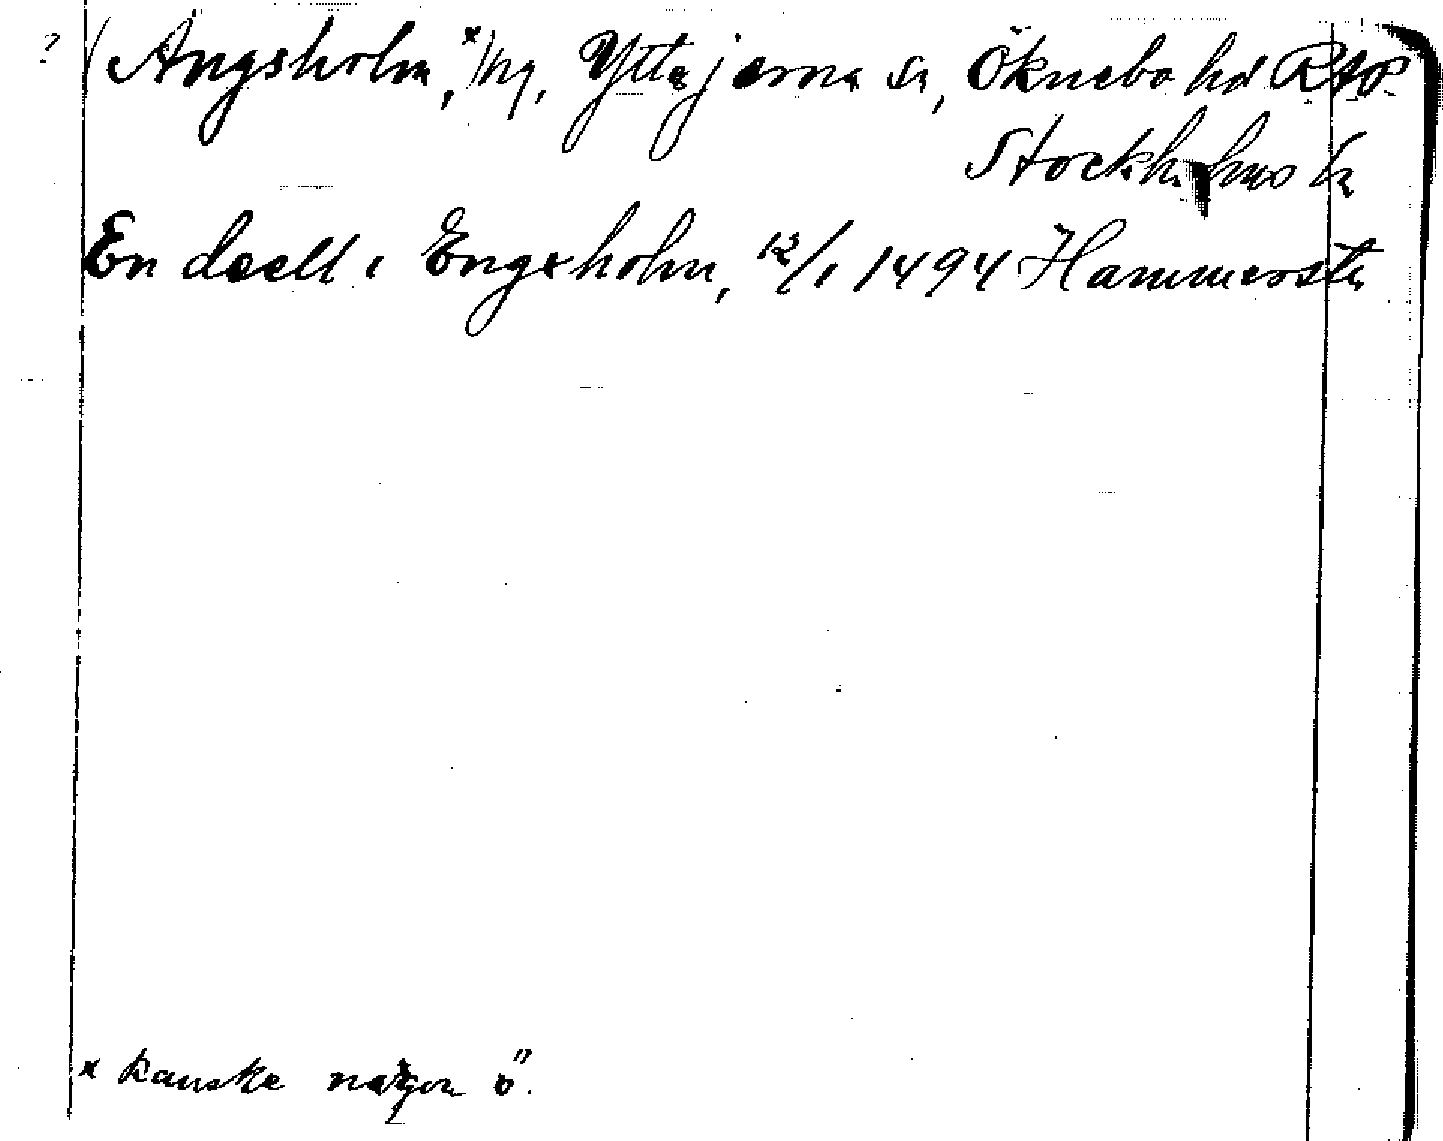 ? (Ängsholm,x) ng, Ytterjärna sn, Öknebo hd
Stockholms l.
En deell i Engxholm, 12/1 1494 Hammersta
x kanske någon ö.